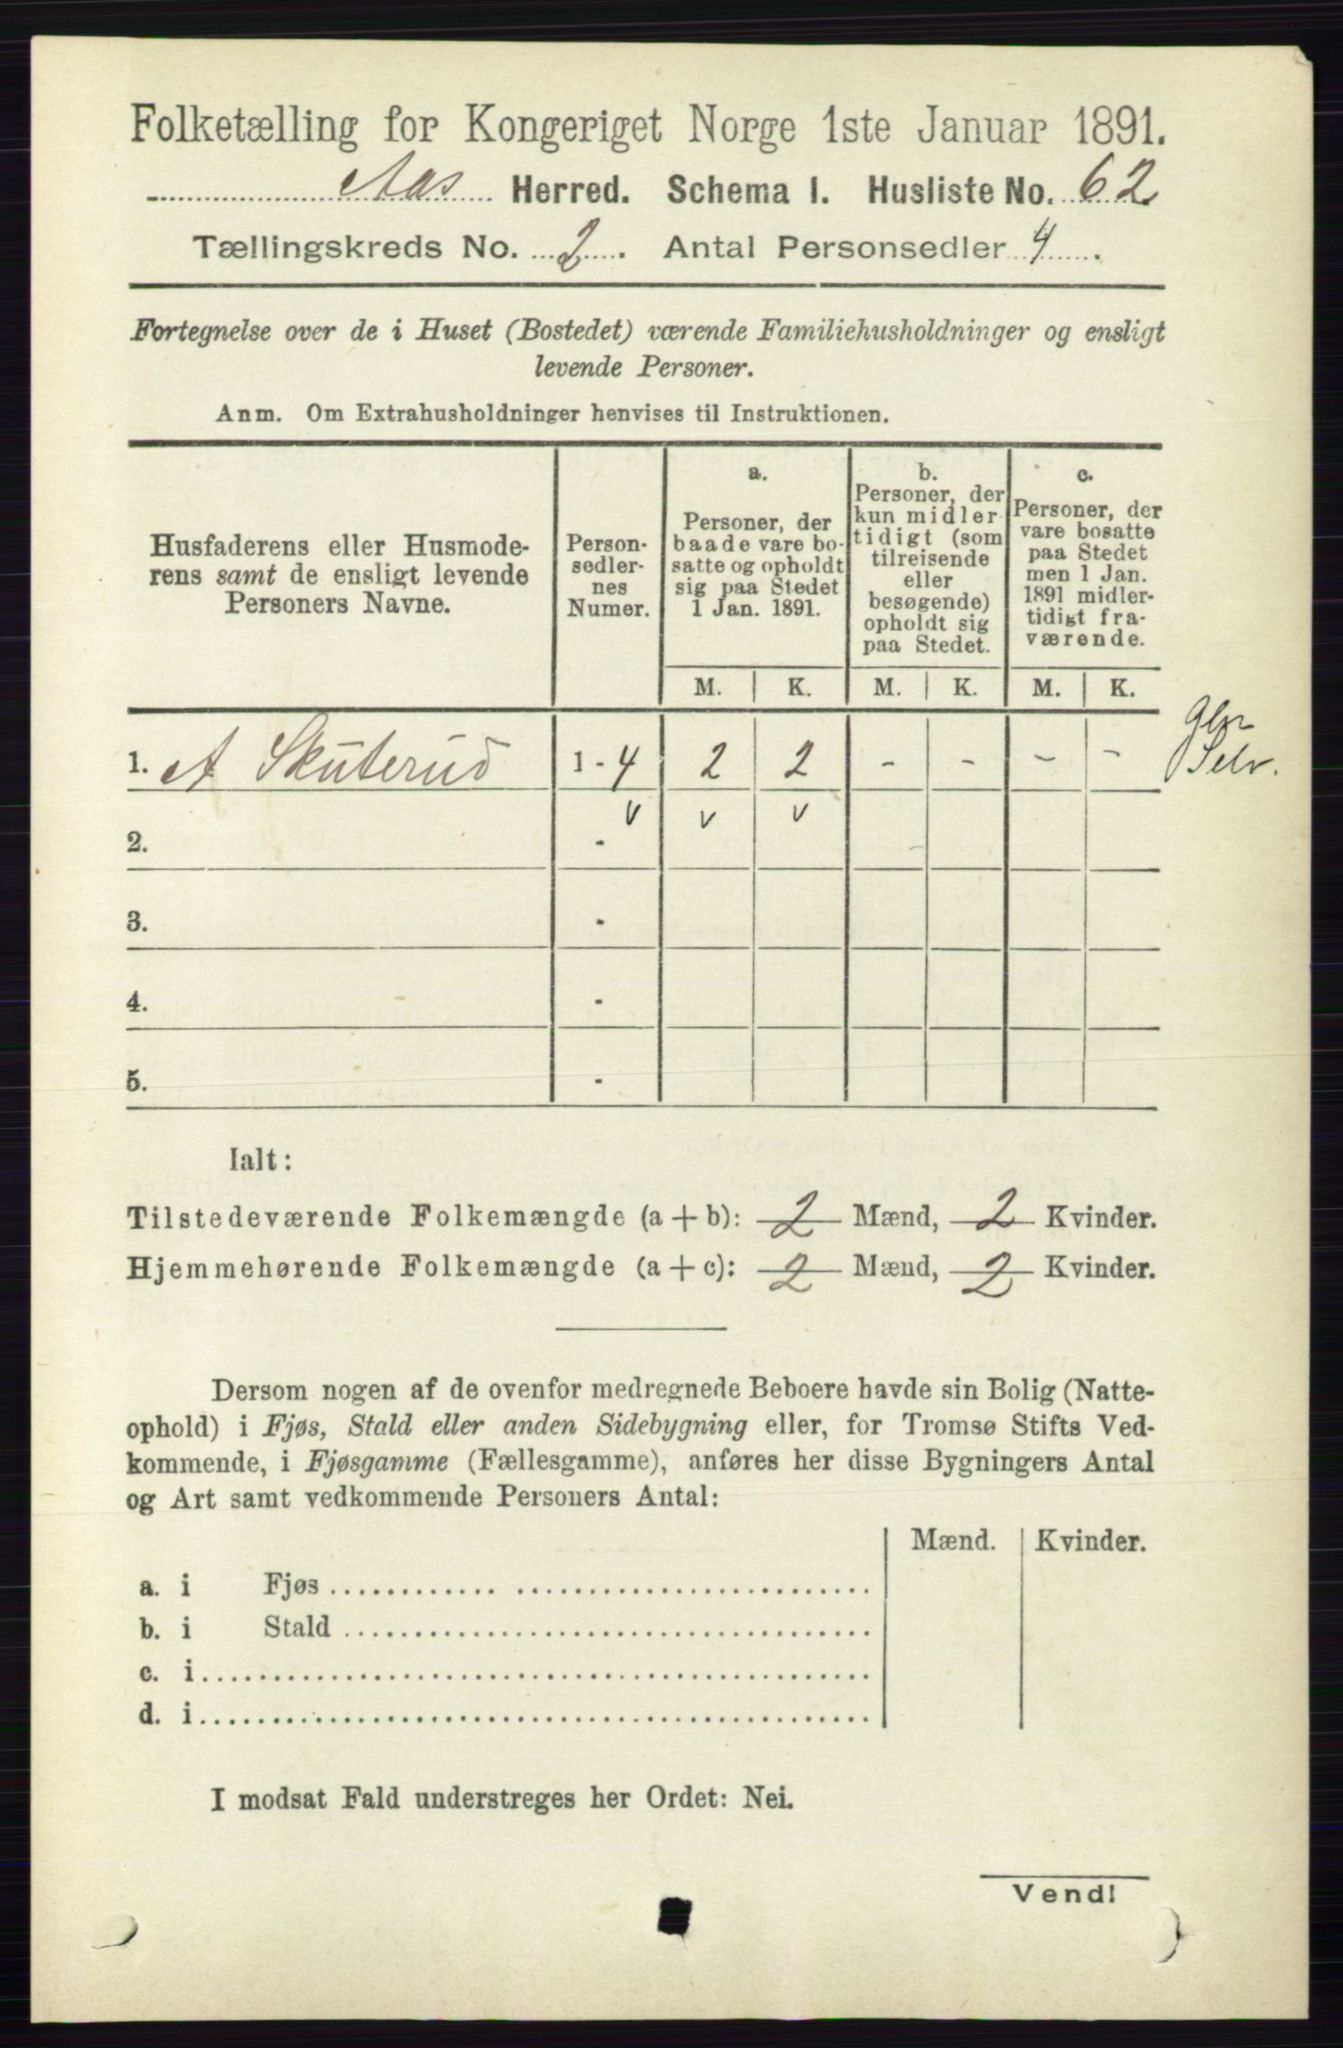 Folketælling for Kongeriget Norge 1ste Januar 1891.
Aas Herred. Schema I. Husliste No. 62
Tællingskreds No. 2. Antal Personsedler 4.
Fortegnelse over de i Huset (Bostedet) værende Familiehusholdninger og ensligt
levende Personer.
Anm. Om Extrahusholdninger henvises til Instruktionen.
Husfaderens eller Husmode-
rens samt de ensligt levende
Personers Navne.
Person-
sedler-
nes
Numer.
a.
Personer, der
baade vare bo-
satte og opholdt
sig paa Stedet
1 Jan. 1891.
b.
Personer, der
kun midler-
tidigt (som
tilreisende
eller
besøgende)
opholdt sig
paa Stedet.
c.
Personer, der
vare bosatte
paa Stedet
men 1 Jan.
1891 midler-
tidigt fra-
værende.
M. K. M. K. M. K.
1. A Skuterud 1 - 4 2 2 - - - - Selv.
v v v
2. -
3. -
4. -
5. -
Ialt:
Tilstedeværende Folkemængde (a + b): 2 Mænd, 2 Kvinder.
Hjemmehørende Folkemængde (a + c): 2 Mænd, 2 Kvinder.
Dersom nogen af de ovenfor medregnede Beboere havde sin Bolig (Natte-
ophold) i Fjøs, Stald eller anden Sidebygning eller, for Tromsø Stifts Ved-
kommende, i Fjøsgamme (Fællesgamme), anføres her disse Bygningers Antal
og Art samt vedkommende Personers Antal:
Mænd. Kvinder.
a. i Fjøs
b. i Stald
c. i
d. i
I modsat Fald understreges her Ordet: Nei.
Vend!